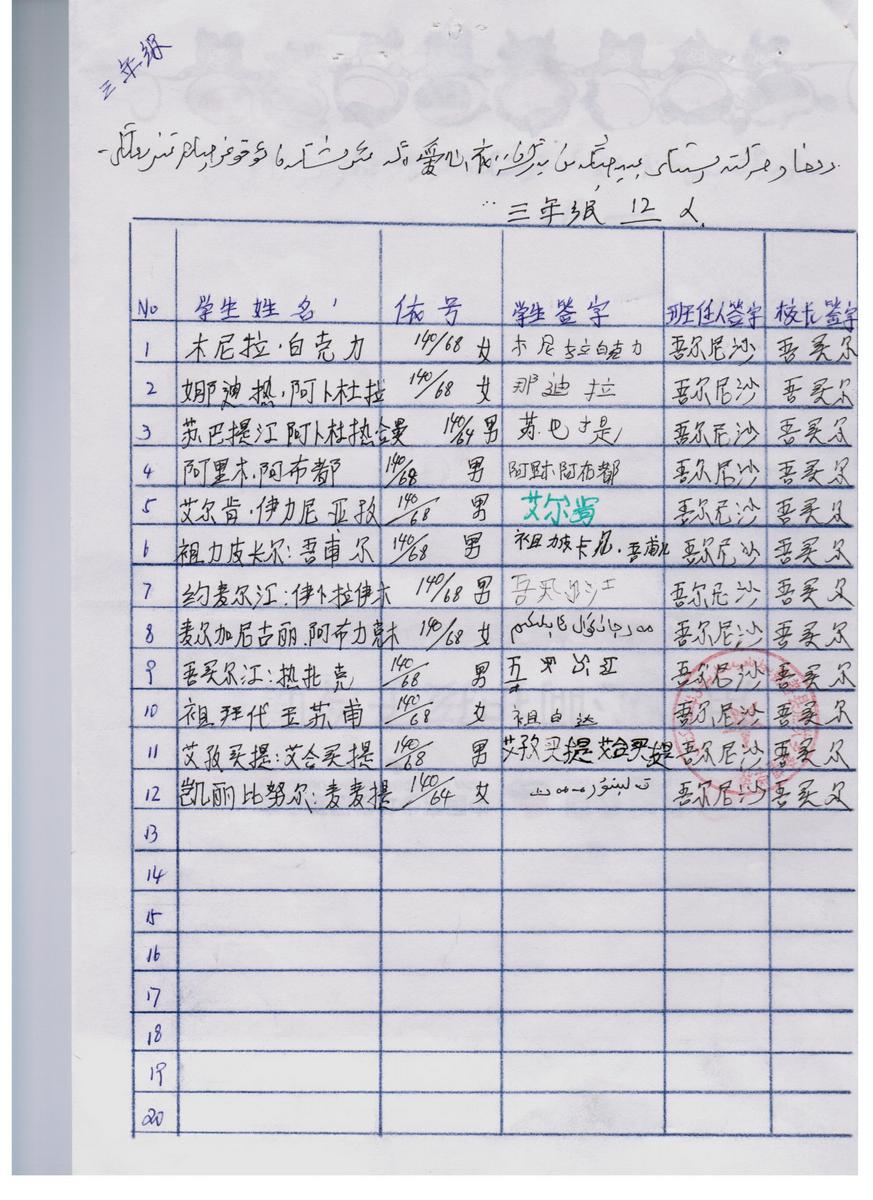 三年级
爱心衣
三年级 12 人
No 学生姓名 依号 学生签字 班任人签字 校长签字
1 木尼拉·白克力 140/68 女 木尼拉白克力 吾尔尼沙 吾买尔
2 娜迪热·阿卜杜拉 140/68 女 那迪拉 吾尔尼沙 吾买尔
3 苏巴提江阿卜杜热合曼 140/64 男 吾尔尼沙 吾买尔
4 阿里木·阿布都 140/68 男 阿里木·阿布都 吾尔尼沙 吾买尔
5 艾尔肯·伊力尼亚孜 140/68 男 艾尔肯 吾尔尼沙 吾买尔
6 祖力皮卡尔:吾甫尔 140/68 男 祖力皮卡尔·吾甫尔 吾尔尼沙 吾买尔
7 约麦尔江:伊卜拉伊木 140/68 男 吾买尔江 吾尔尼沙 吾买尔
8 麦尔加尼古丽·阿布力克木 140/68 女 吾尔尼沙 吾买尔
9 吾买尔江:热扎克 140/68 男 吾尔尼沙 吾买尔
10 祖拜代玉苏甫 140/68 女 祖白达 吾尔尼沙 吾买尔
11 艾孜买提:艾合买提 140/68 男 艾孜买提艾合买提 吾尔尼沙 吾买尔
12 凯丽比努尔:麦麦提 140/64 女 吾尔尼沙 吾买尔
13
14
15
16
17
18
19
20